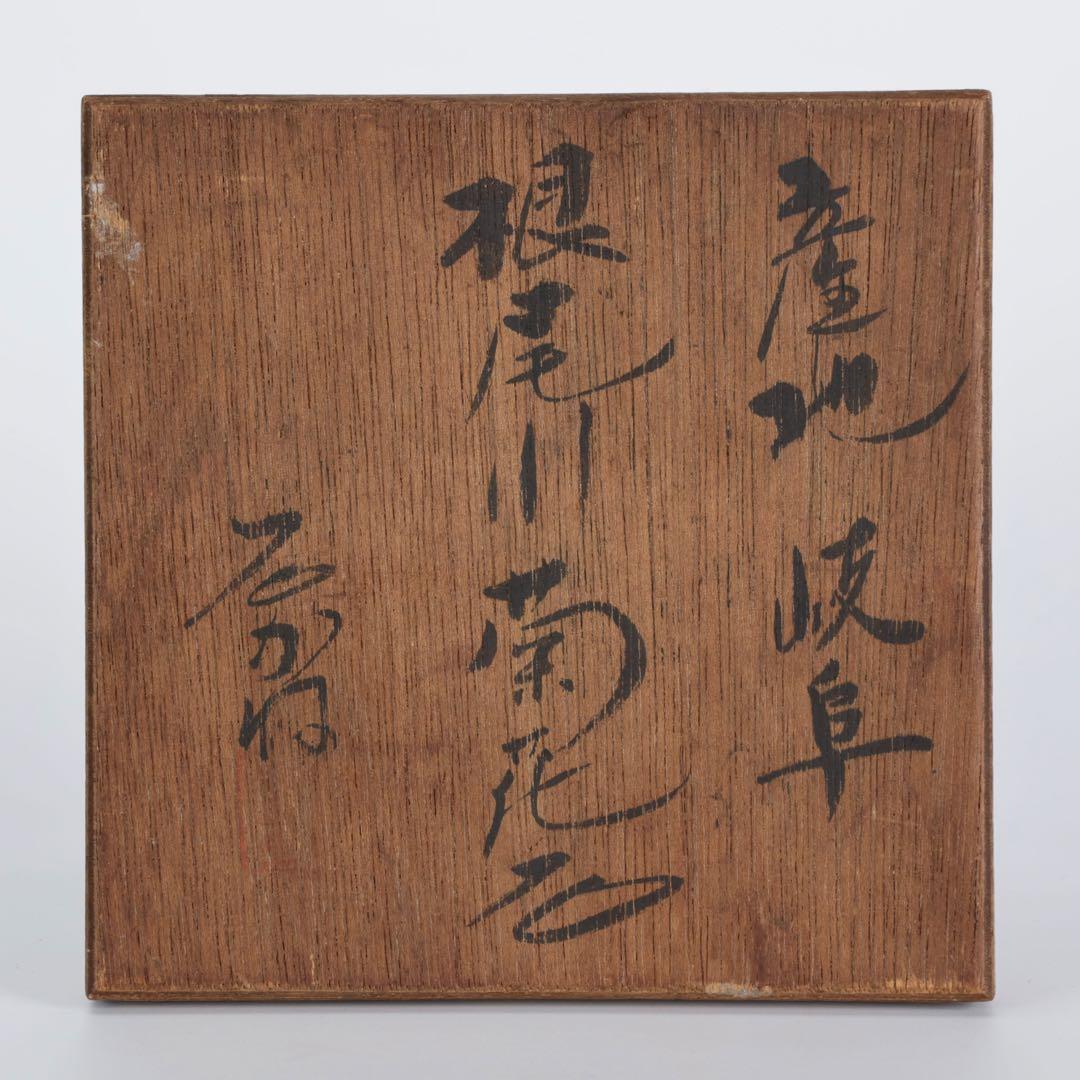 産地 岐阜
根尾川 菊花石